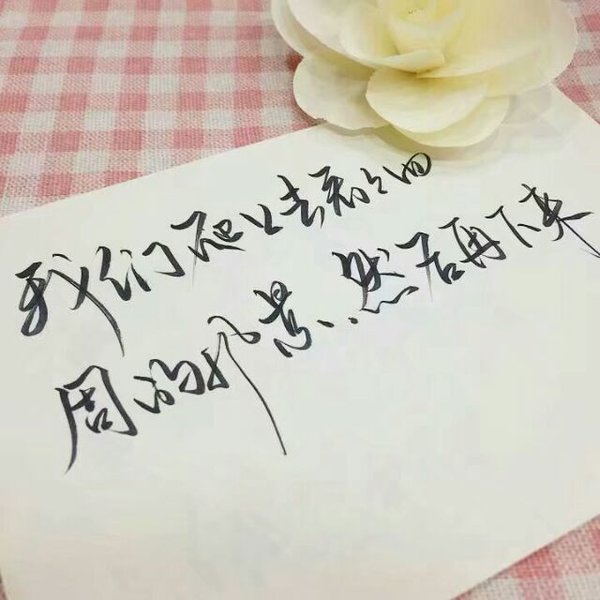 我们爬上去看个四
周的风景、然后再下来